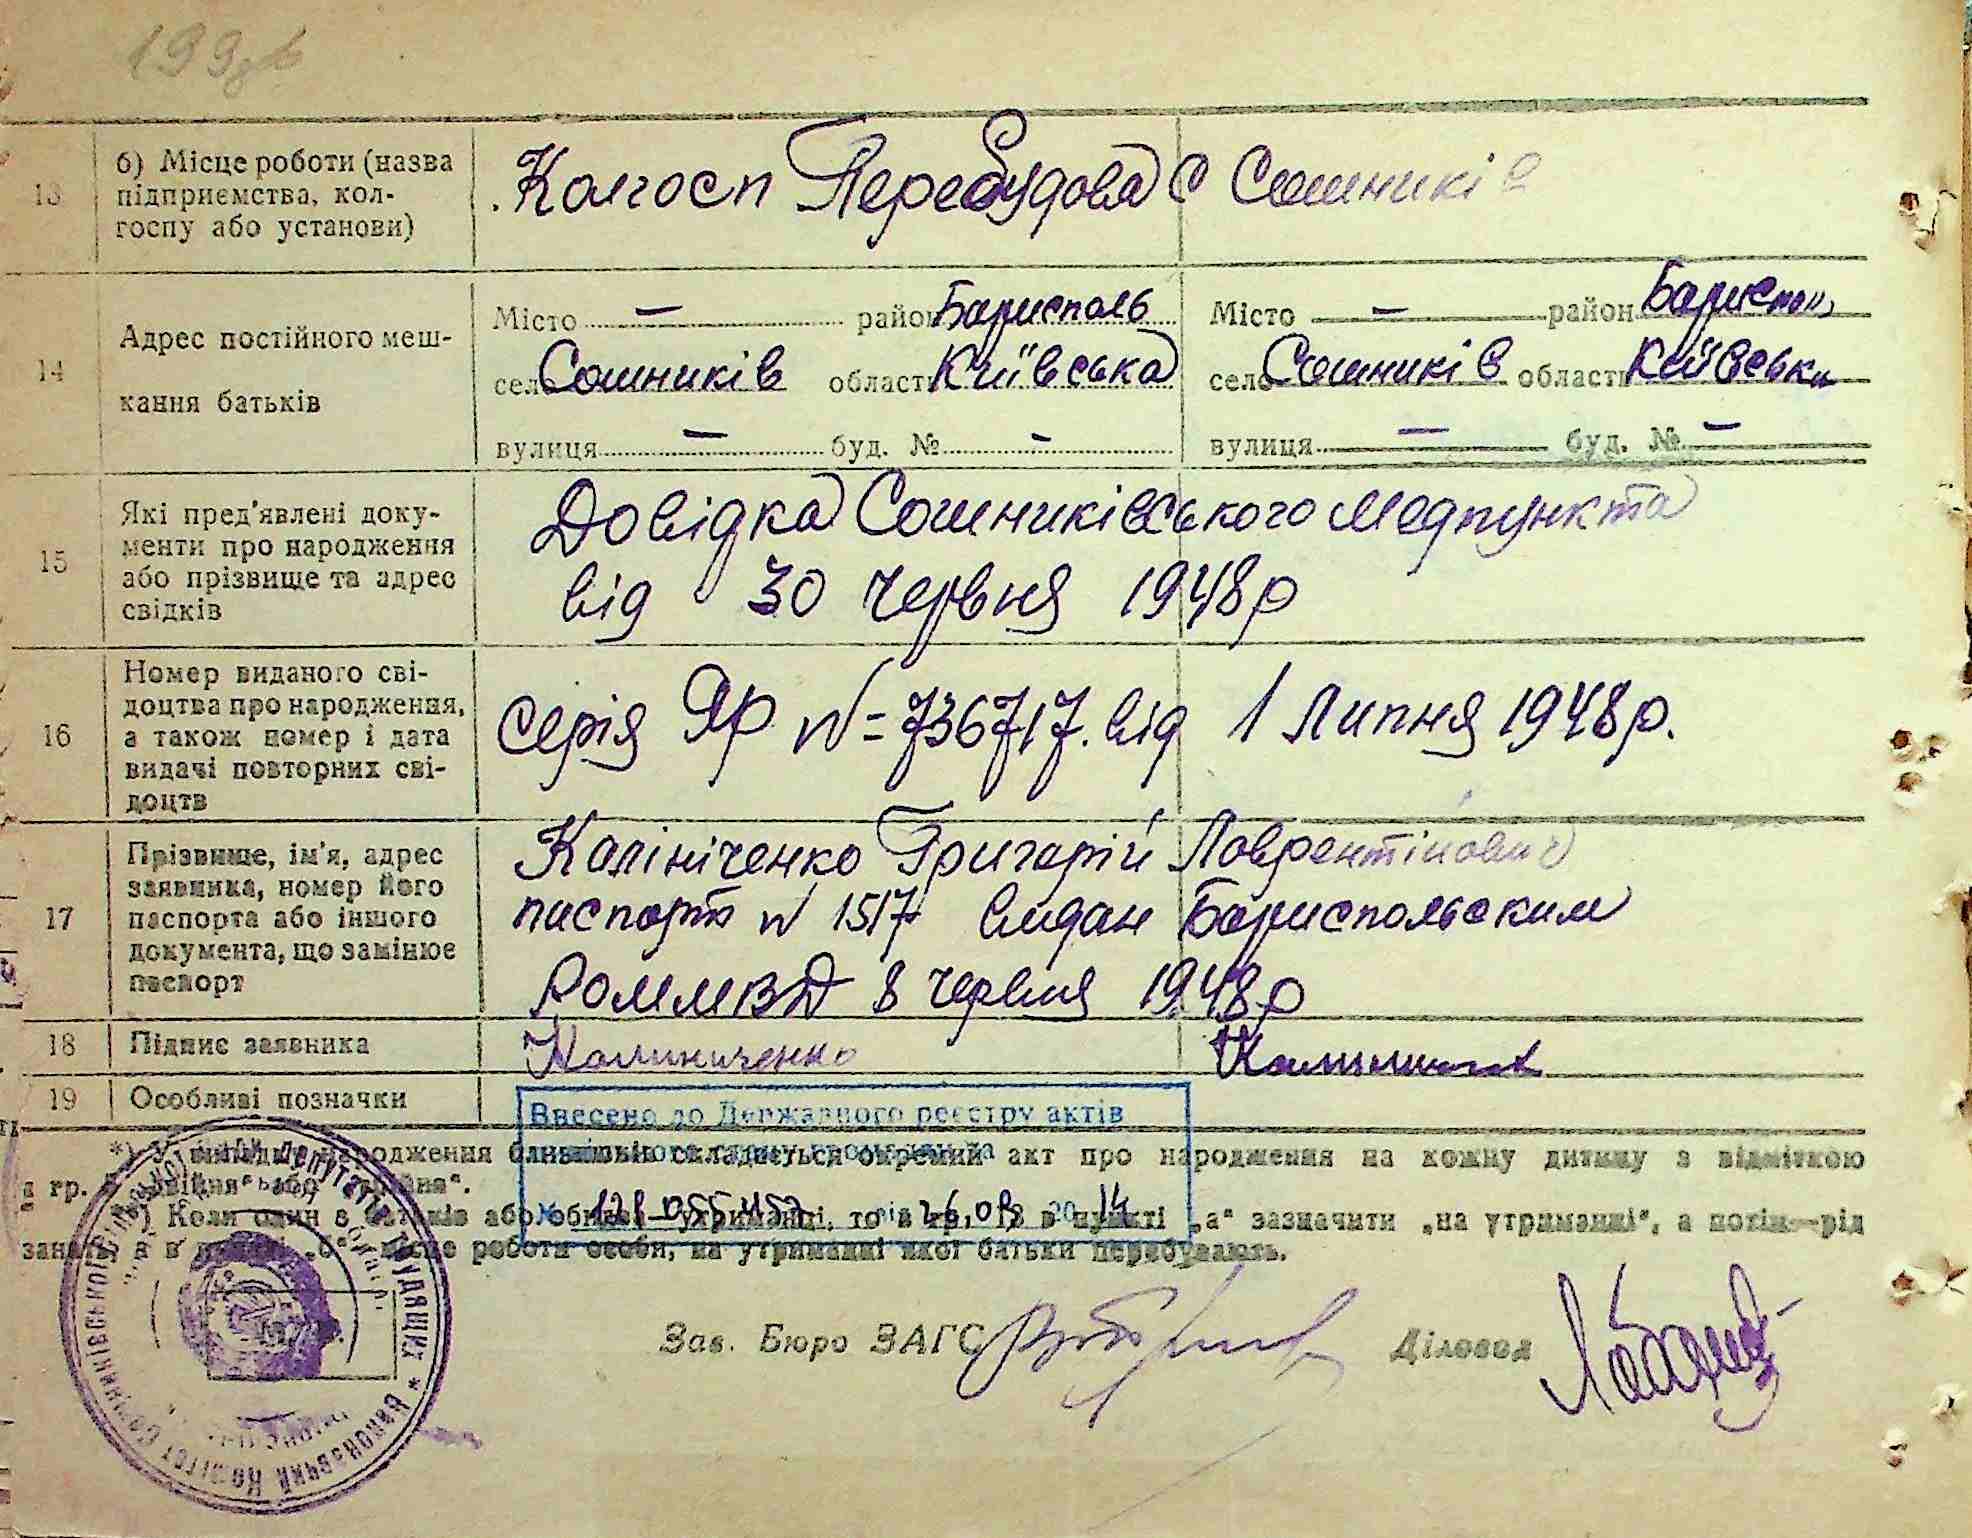 199
13 б) Місце роботи (назва підприємства, колгоспу або установи) Колгосп Перебудова с Сошників
14 Адрес постійного мешкання батьків
Місто — район Бориспіль Місто — район
село Сошників область Київська село Сошників область Київська
вулиця — буд. № - вулиця — буд. № -
15 Які пред'явлені документи про народження або прізвище та адрес свідків
Довідка Сошниківського Медпункта
від 30 червня 1948р
16 Номер виданого свідоцтва про народження, а також номер і дата видачі повторних свідоцтв
серія ЯР N=736717. від 1 Липня 1948р.
17 Прізвище, ім'я, адрес заявника, номер його паспорта або іншого документа, що замінює паспорт
Калініченко Григорій Лаврентійович
паспорт N 1517 видан Бориспольским
РОММВД 8 червня 1948р
18 Підпис заявника Калиниченко
19 Особливі позначки
Внесено до Державного реєстру актів
*) У випадку народження близнят складається окремий акт про народження на кожну дитину з відміткою
в гр. „двійня" або „трійня".
) Коли один з батьків або обидва — утриманці, то в гр. 13 в пункті „а" зазначити „на утриманні", а потім—рід
занять, а в пункті „б" місце роботи особи, на утриманні якої батьки перебувають.
Зав. Бюро ЗАГС Діловод
депутатів трудящих * Виконавчий Комітет Сошниківської